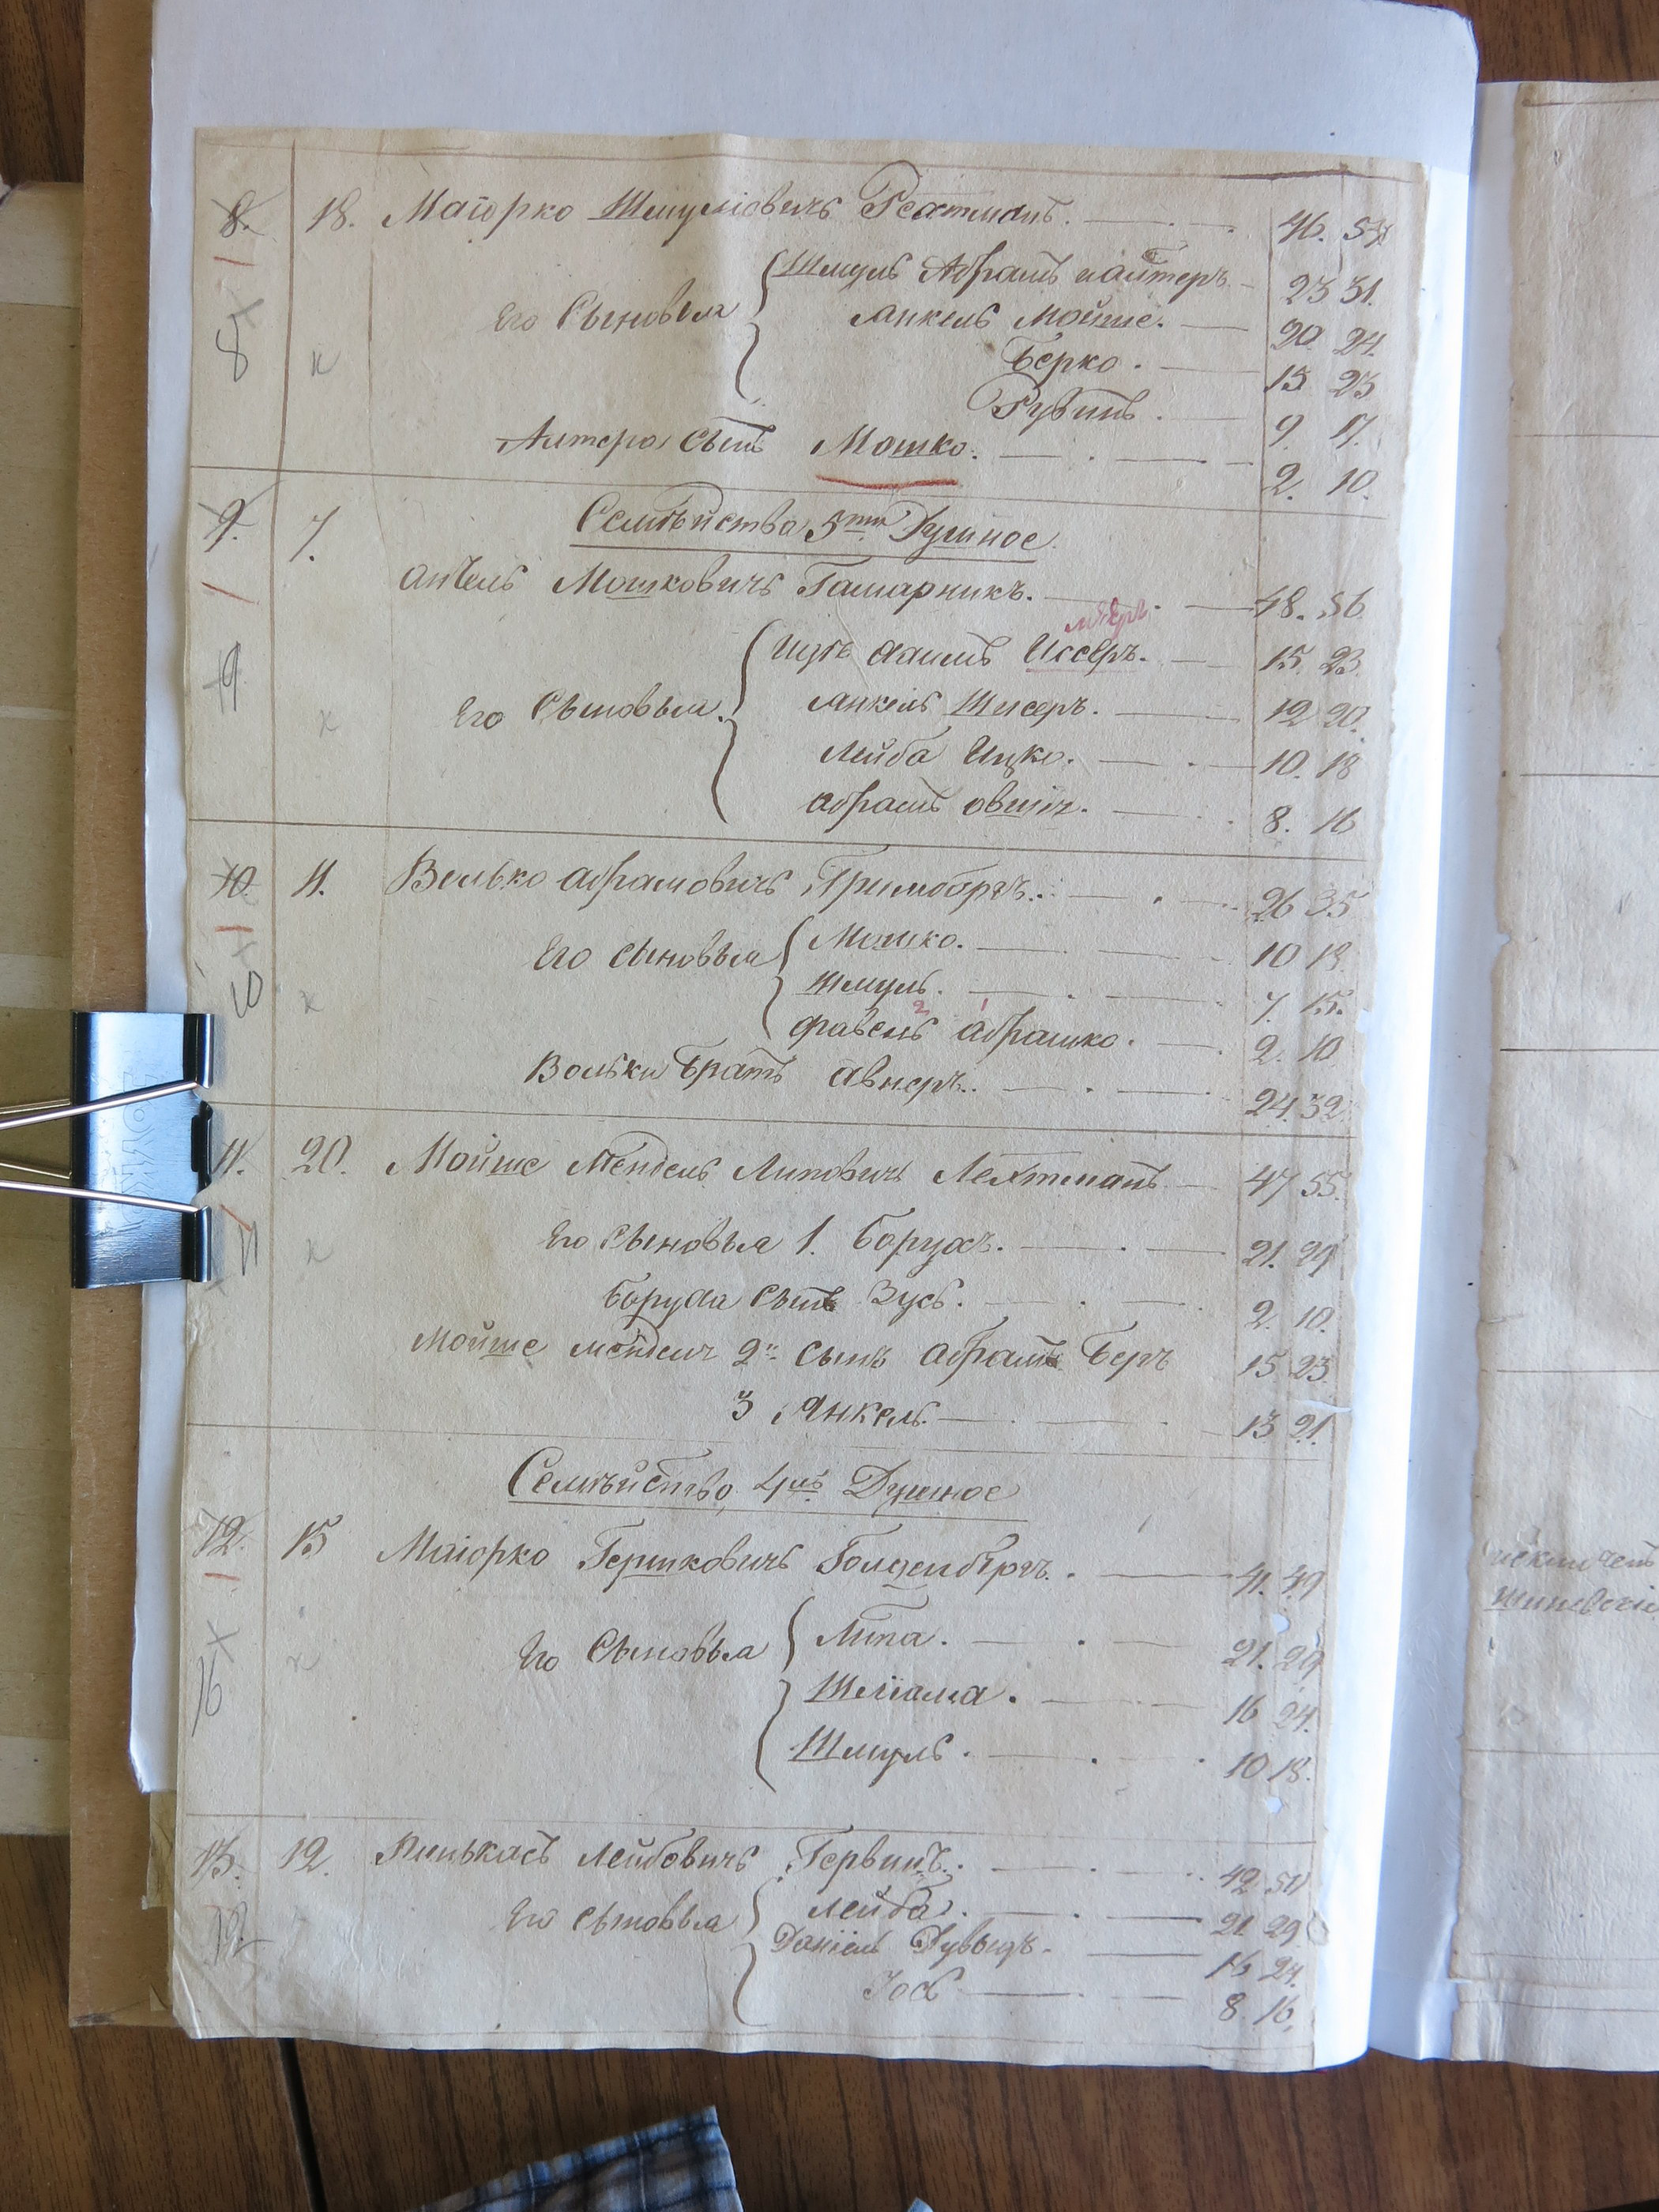 8. 18. Маіорко Шмуліовичъ Рехтманъ. 46. 54
Шмуль Абрамъ 23 31.
Его Сыновья
Янкель Мойше. 20. 24.
8 Берко. 15 23
Рувинъ. 9 17.
Алтера Сынъ Мошко. 2. 10.
Семѣйства 5ти Душное
9. 7.
Мошковичъ Гамарникъ. 48. 56
Исееръ. 15. 23.
9 Его Сыновья Янкель 12 20.
Лейба Ицко. 10. 18
Абрамъ Овшія. 8. 16
10. 11. Волько Абрамовичъ 26 35
Его Сыновья Мошко. 10 18
10 Шмуль. 7. 15.
2 1
Абрашко. 2. 10
Вольки Братъ Авнеръ. 24. 32.
11. 20. Мойше Мендель Липовичъ Лехтманъ 47 55.
11 Его Сыновья 1. Борухъ. 21. 29
Боруха Сынъ Зусь. 2. 10.
Мойше Менделя 2й Сынъ Абрамъ Беръ 15 23.
3 Янкель. 13 21.
Семѣйство 4хъ Душное
12. 15 Маіорко Гершковичъ Голденбергъ. 41. 49
Его Сыновья Липа. 21. 29
16 Шліома. 16 24.
Шмуль. 10 18.
13. 12. Пинькасъ Лейбовичъ Гервицъ. 42 50
Его Сыновья Лейба. 21 29
12 Даніель Дувыдъ. 16 24.
Іось 8. 16.